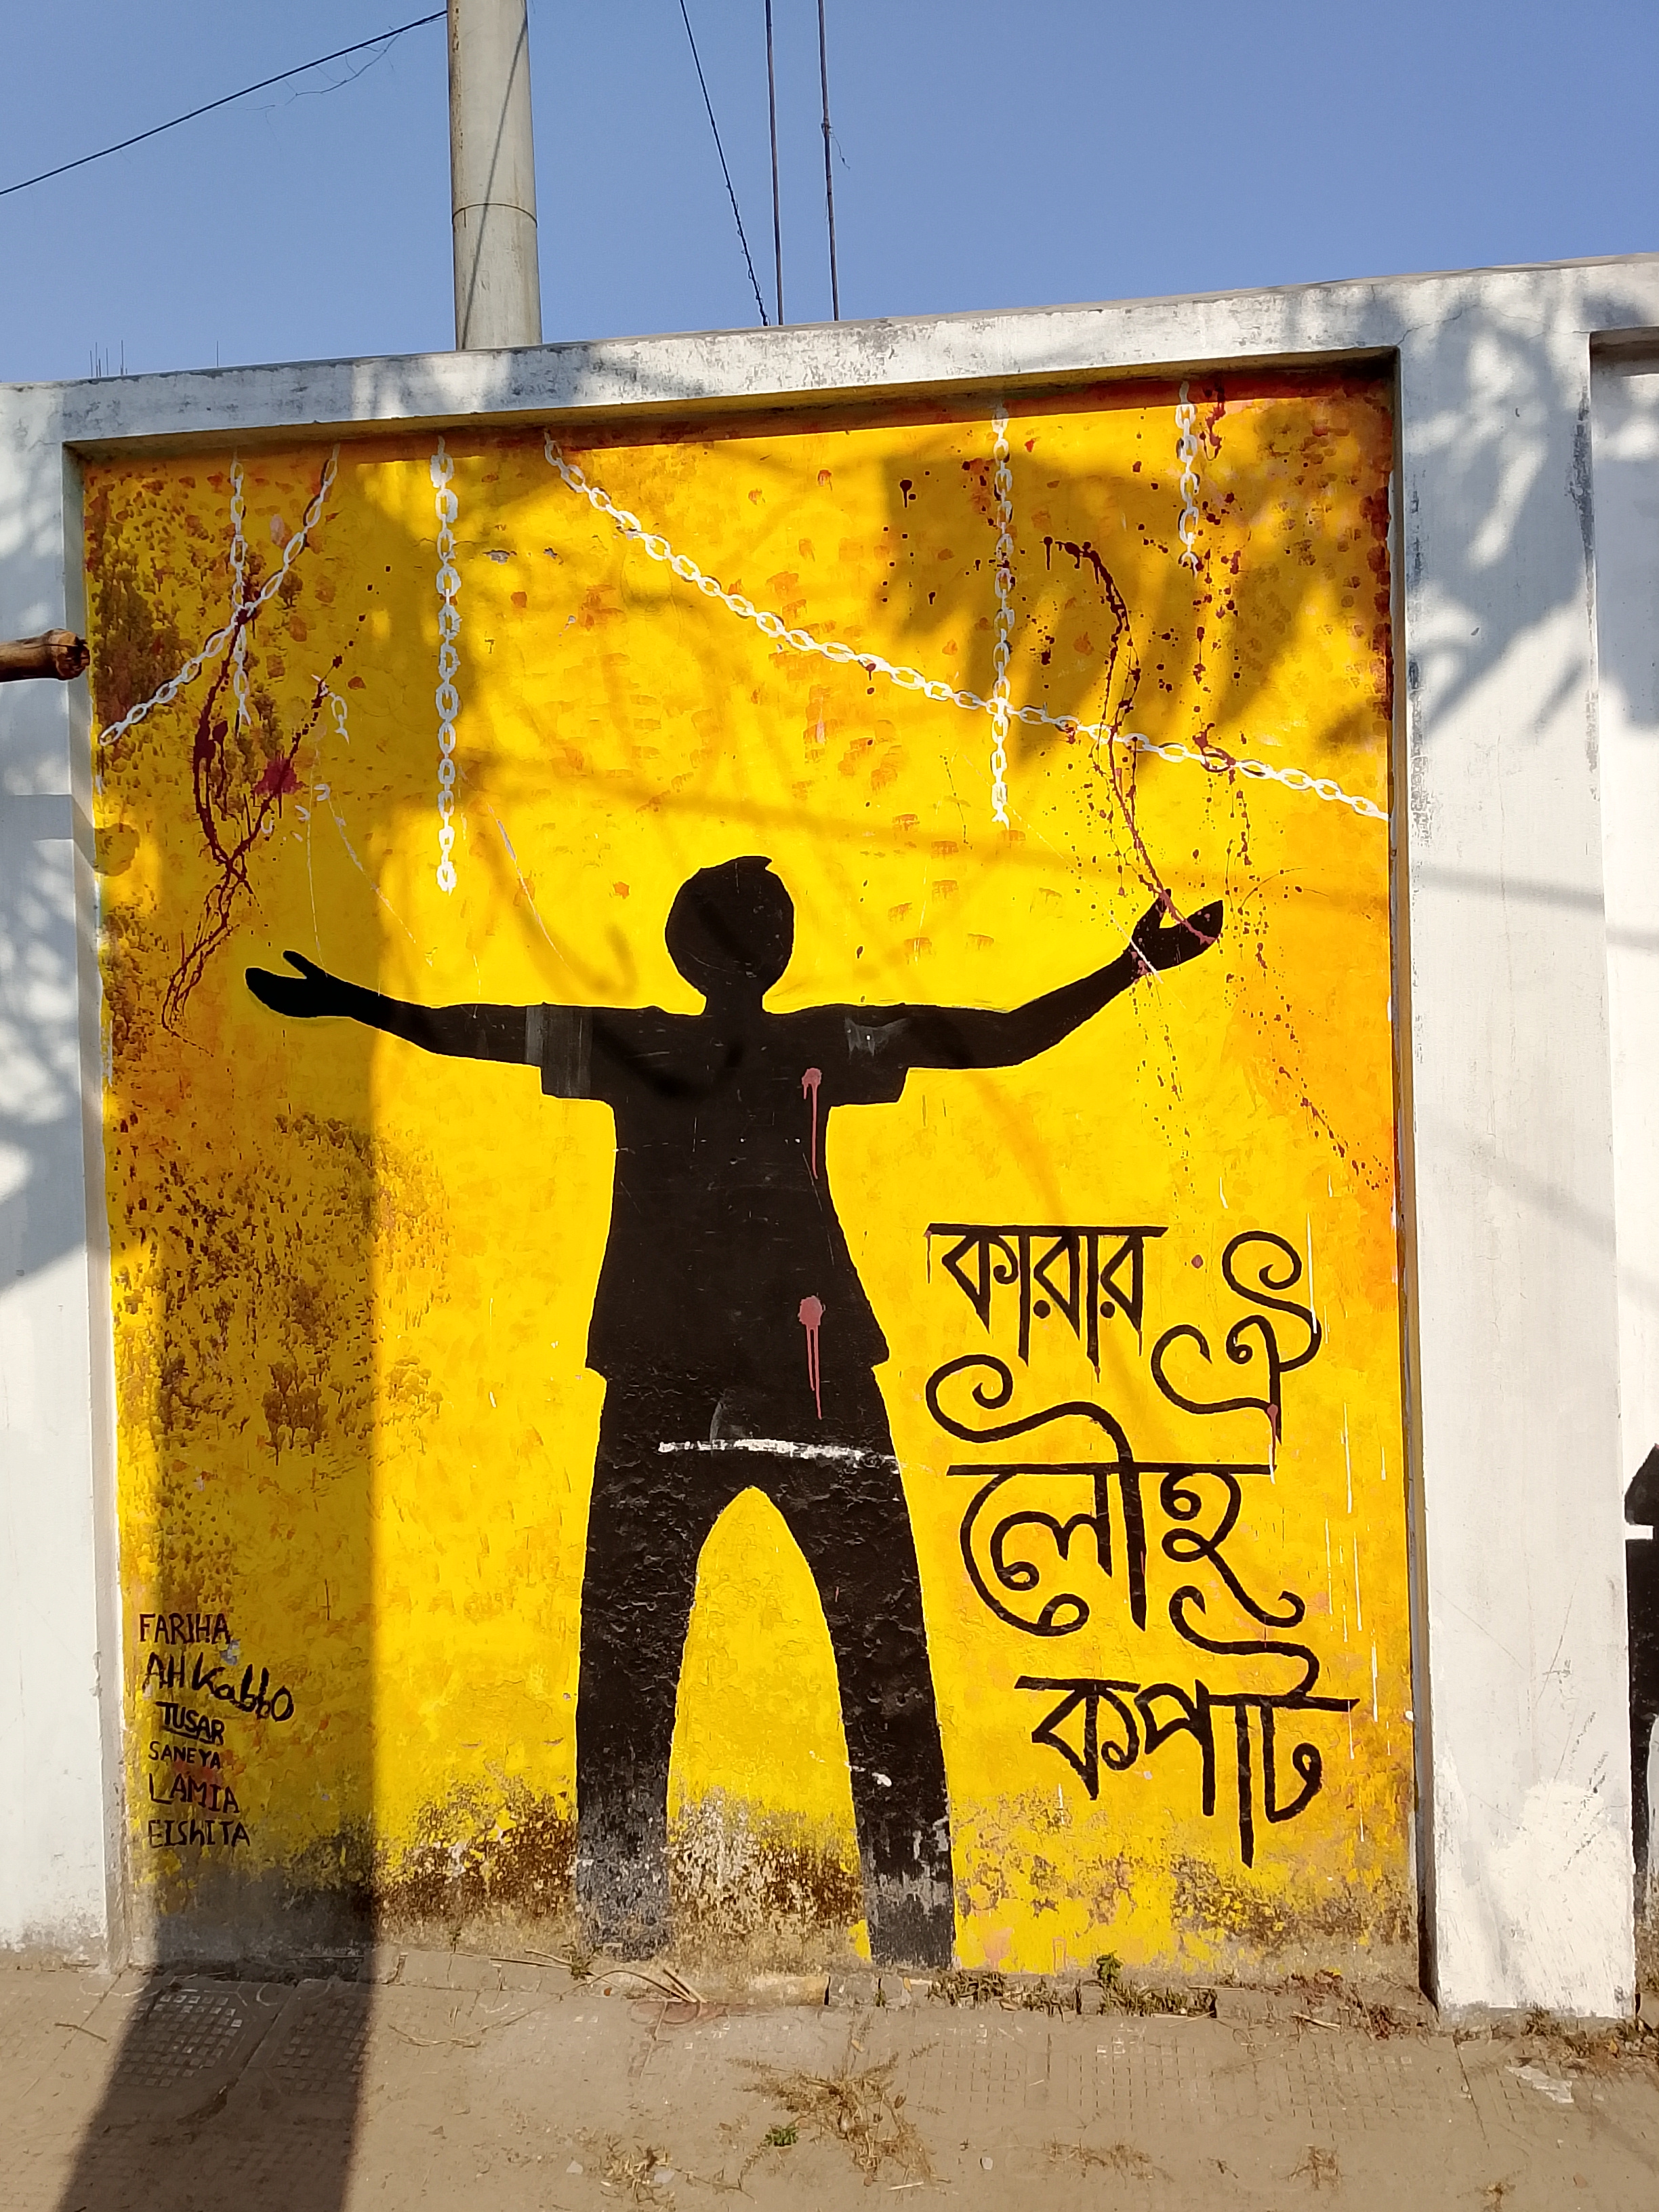 কারার
ঐ
লৌহ
কপাট
FARIHA
AHKabbO
TUSAR
SANEYA
LAMIA
EISHITA